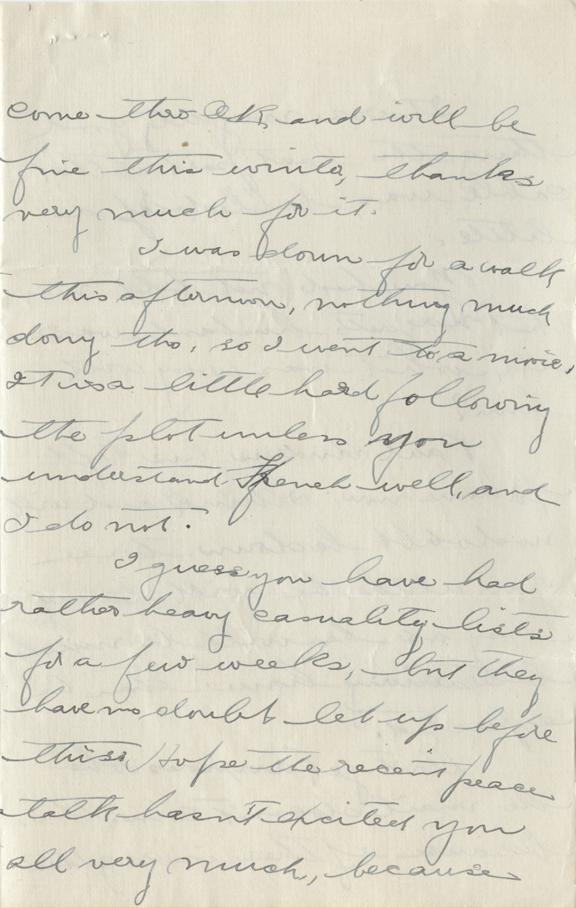 come thro O.K. and will be
fine this winter, thanks
very much for it.
I was down for a walk
this afternoon, nothing much
doing tho, so I went to a movie,
It is a little hard following
the plot unless you
understand French well, and
I do not.
I guess you have had
rather heavy casuality lists
for a few weeks, but they
have no doubt let up before
this. Hope the recent peace
talk hasn't excited you
all very much, because